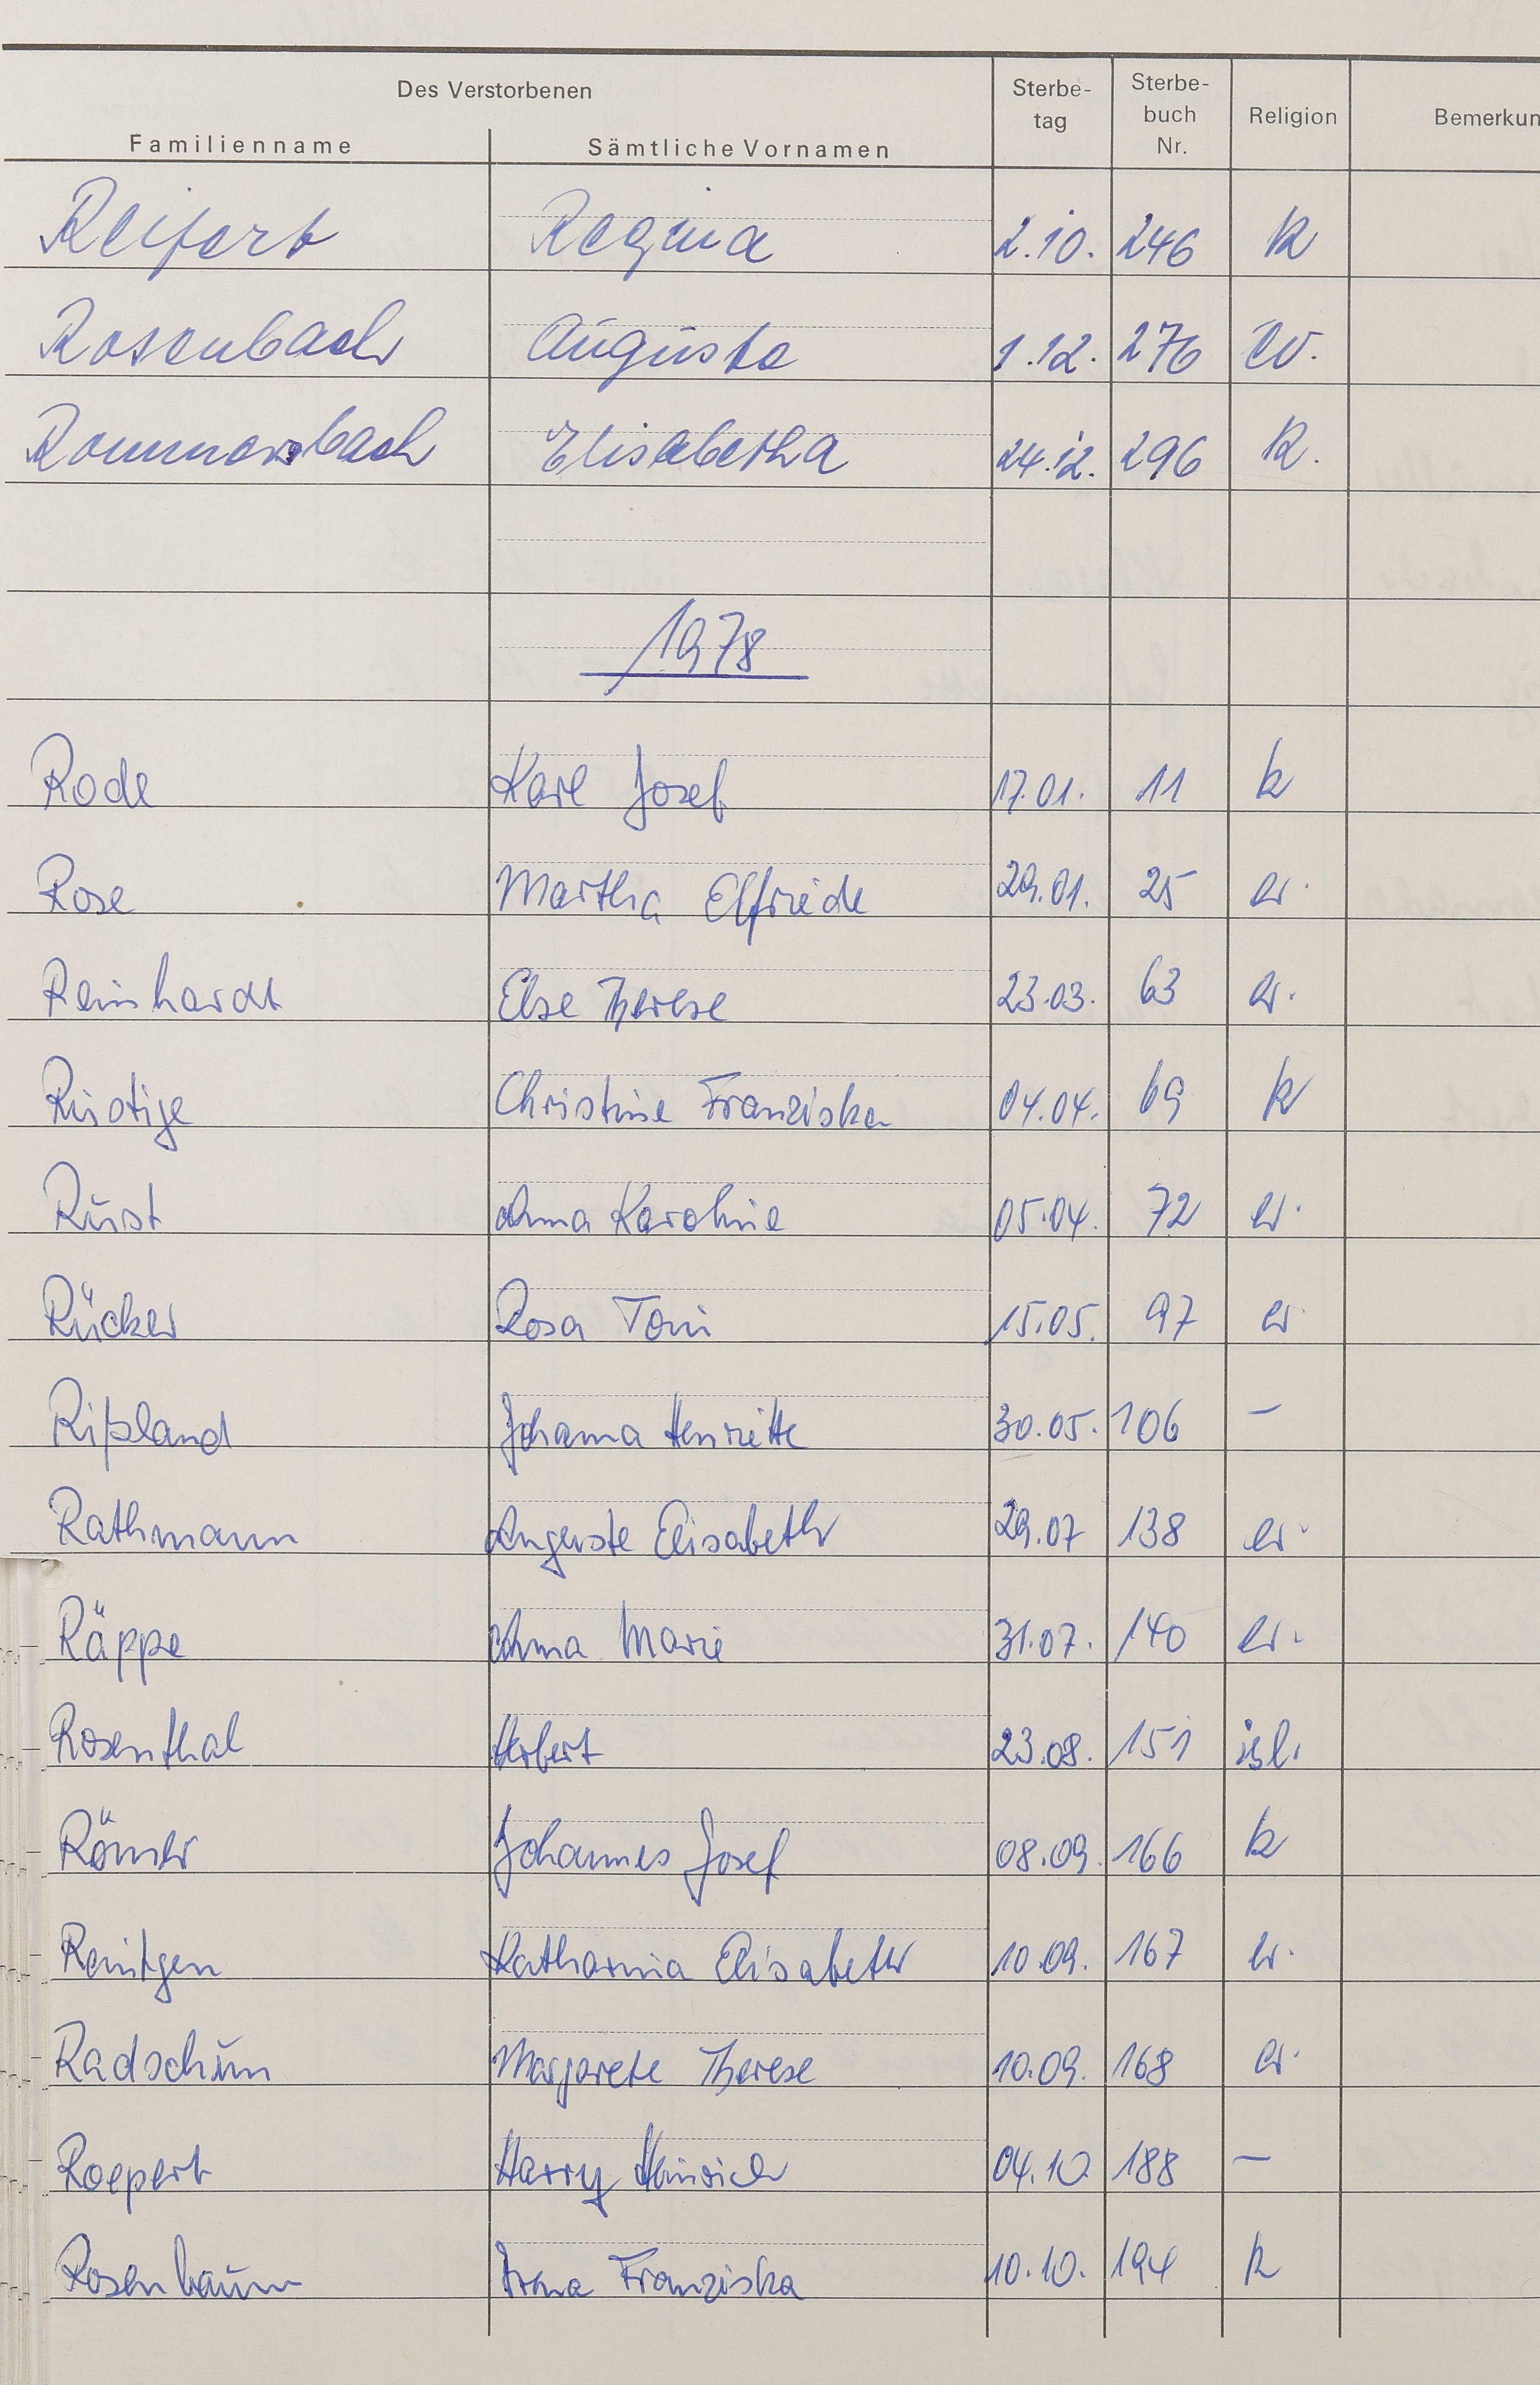 Des Verstorbenen
Familienname Sämtliche Vornamen Sterbe-tag Sterbe-buch Nr. Religion Bemerkun
Reifert Regina 2.10. 246 k
Rosenbach Auguste 1.12. 276 ev.
Rommersbach Elisabetha 24.12. 296 k.
1978
Rode Karl Josef 17.01. 11 k
Rose Martha Elfriede 29.01. 25 ev.
Reinhardt Else Therese 23.03. 63 ev.
Rustige Christine Franziska 04.04. 69 k
Rust Anna Karoline 05.04. 72 ev.
Rücker Rosa Toni 15.05. 97 ev
Rißland Johanna Henriette 30.05. 106 –
Rathmann Auguste Elisabeth 29.07 138 ev.
Räppe Anna Marie 31.07. 140 ev.
Rosenthal Herbert 23.08. 151 isl.
Römer Johannes Josef 08.09. 166 k
Rentgen Katharina Elisabeth 10.09. 167 ev.
Radschun Margarete Therese 10.09. 168 ev.
Roepert Harry Heinrich 04.10. 188 –
Rosenbaum Irma Franziska 10.10. 194 k